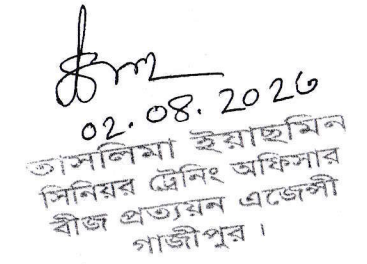 02.08.2026
তাসলিমা ইয়াছমিন
সিনিয়র ট্রেনিং অফিসার
বীজ প্রত্যয়ন এজেন্সী
গাজীপুর।